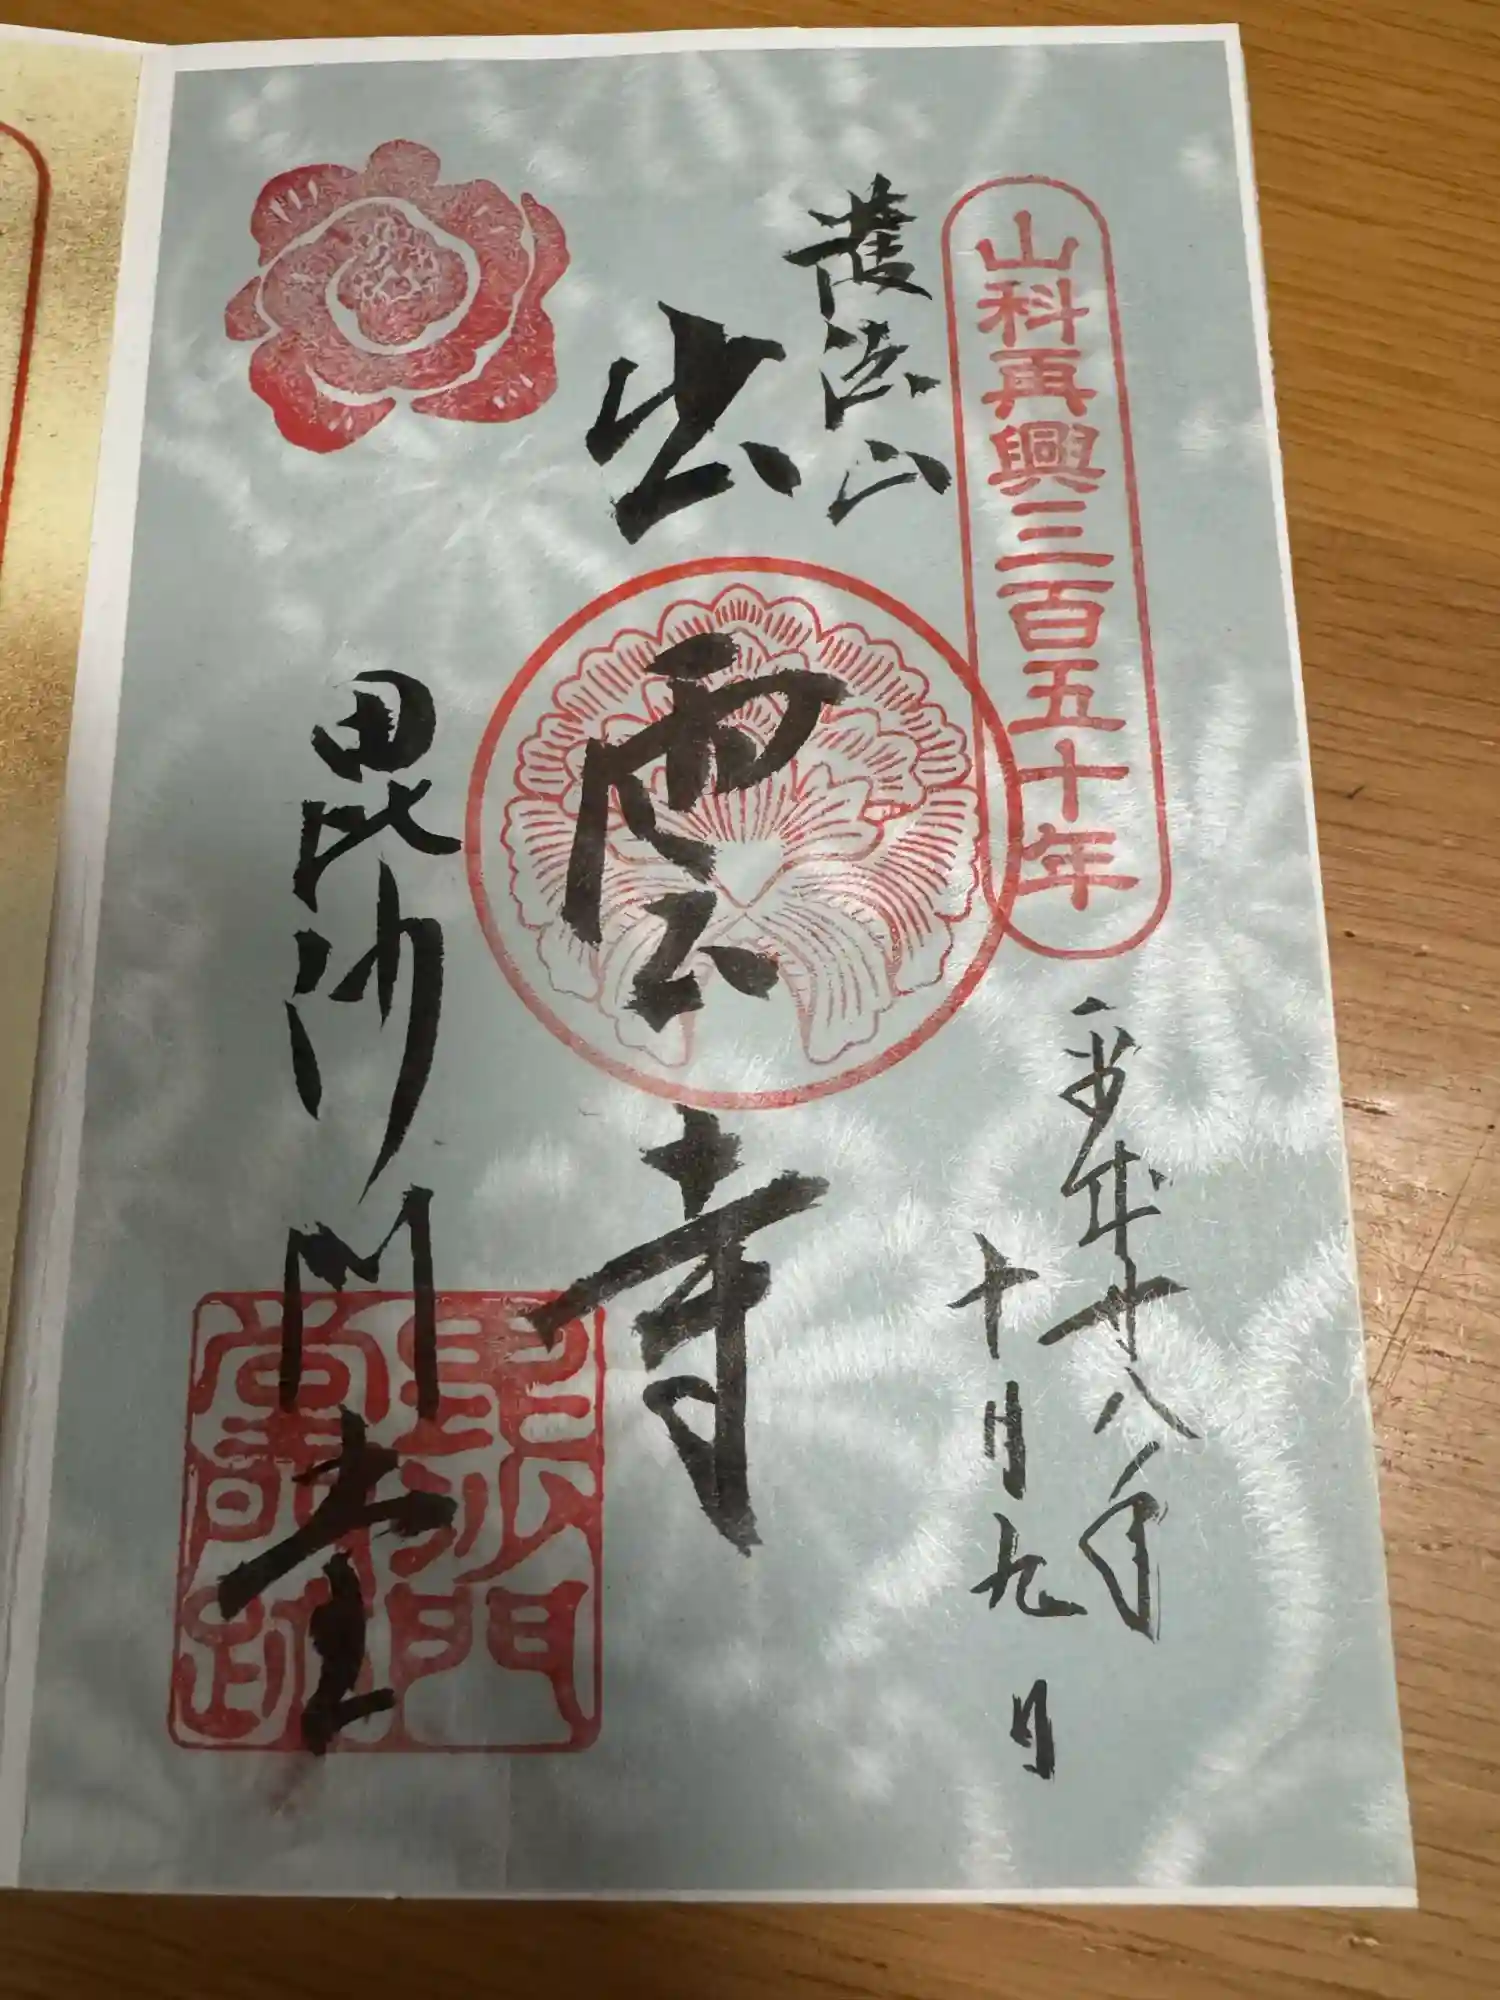 山科再興三百五十年
平成廿八年
十月九日
護法山
出雲寺
毘沙門堂
毘沙門
堂門跡